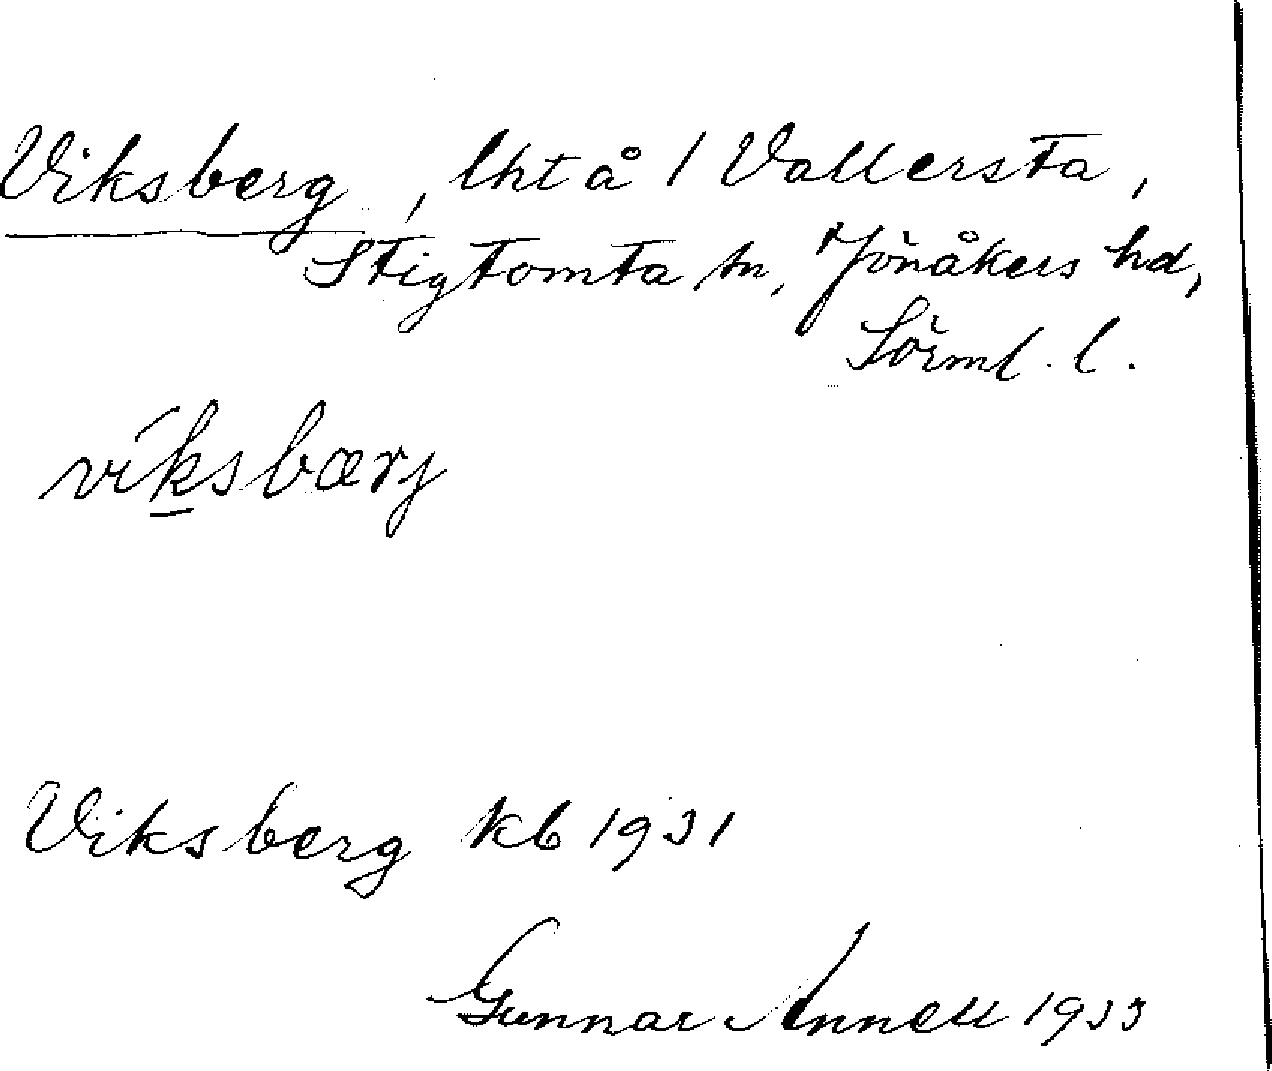 Viksberg, lht å 1 Vallersta,
Stigtomta sn, Jönåkers hd,
Sörml. l.
víksbærj
Viksberg kb 1931
Gunnar Annell 1933